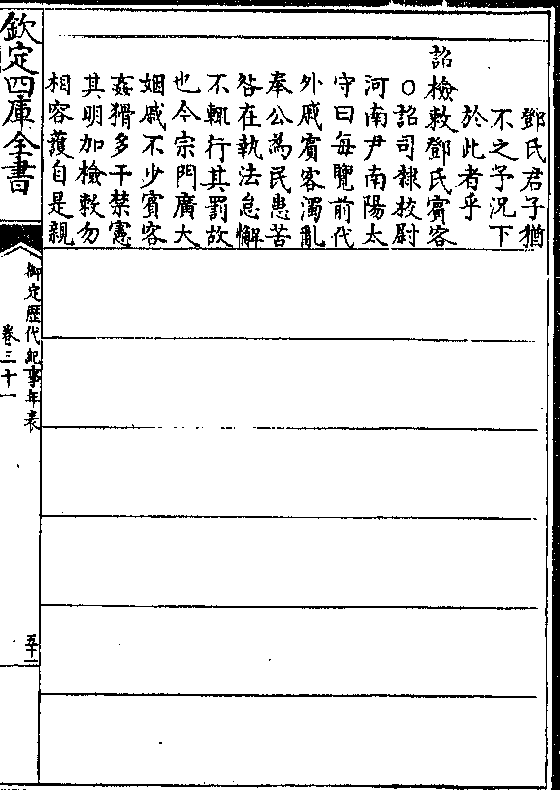 鄧氏君子猶
不之予況下
於此者乎
詔檢敕鄧氏賓客
○詔司隸校尉
河南尹南陽太
守曰每覽前代
外戚賓客濁亂
奉公為民患苦
咎在執法怠懈
不輒行其罰故
也今宗門廣大
姻戚不少賓客
姦猾多干禁憲
其明加檢敕勿
相容護自是親
欽定四庫全書
御定歷代紀事年表
卷三十一
五十二